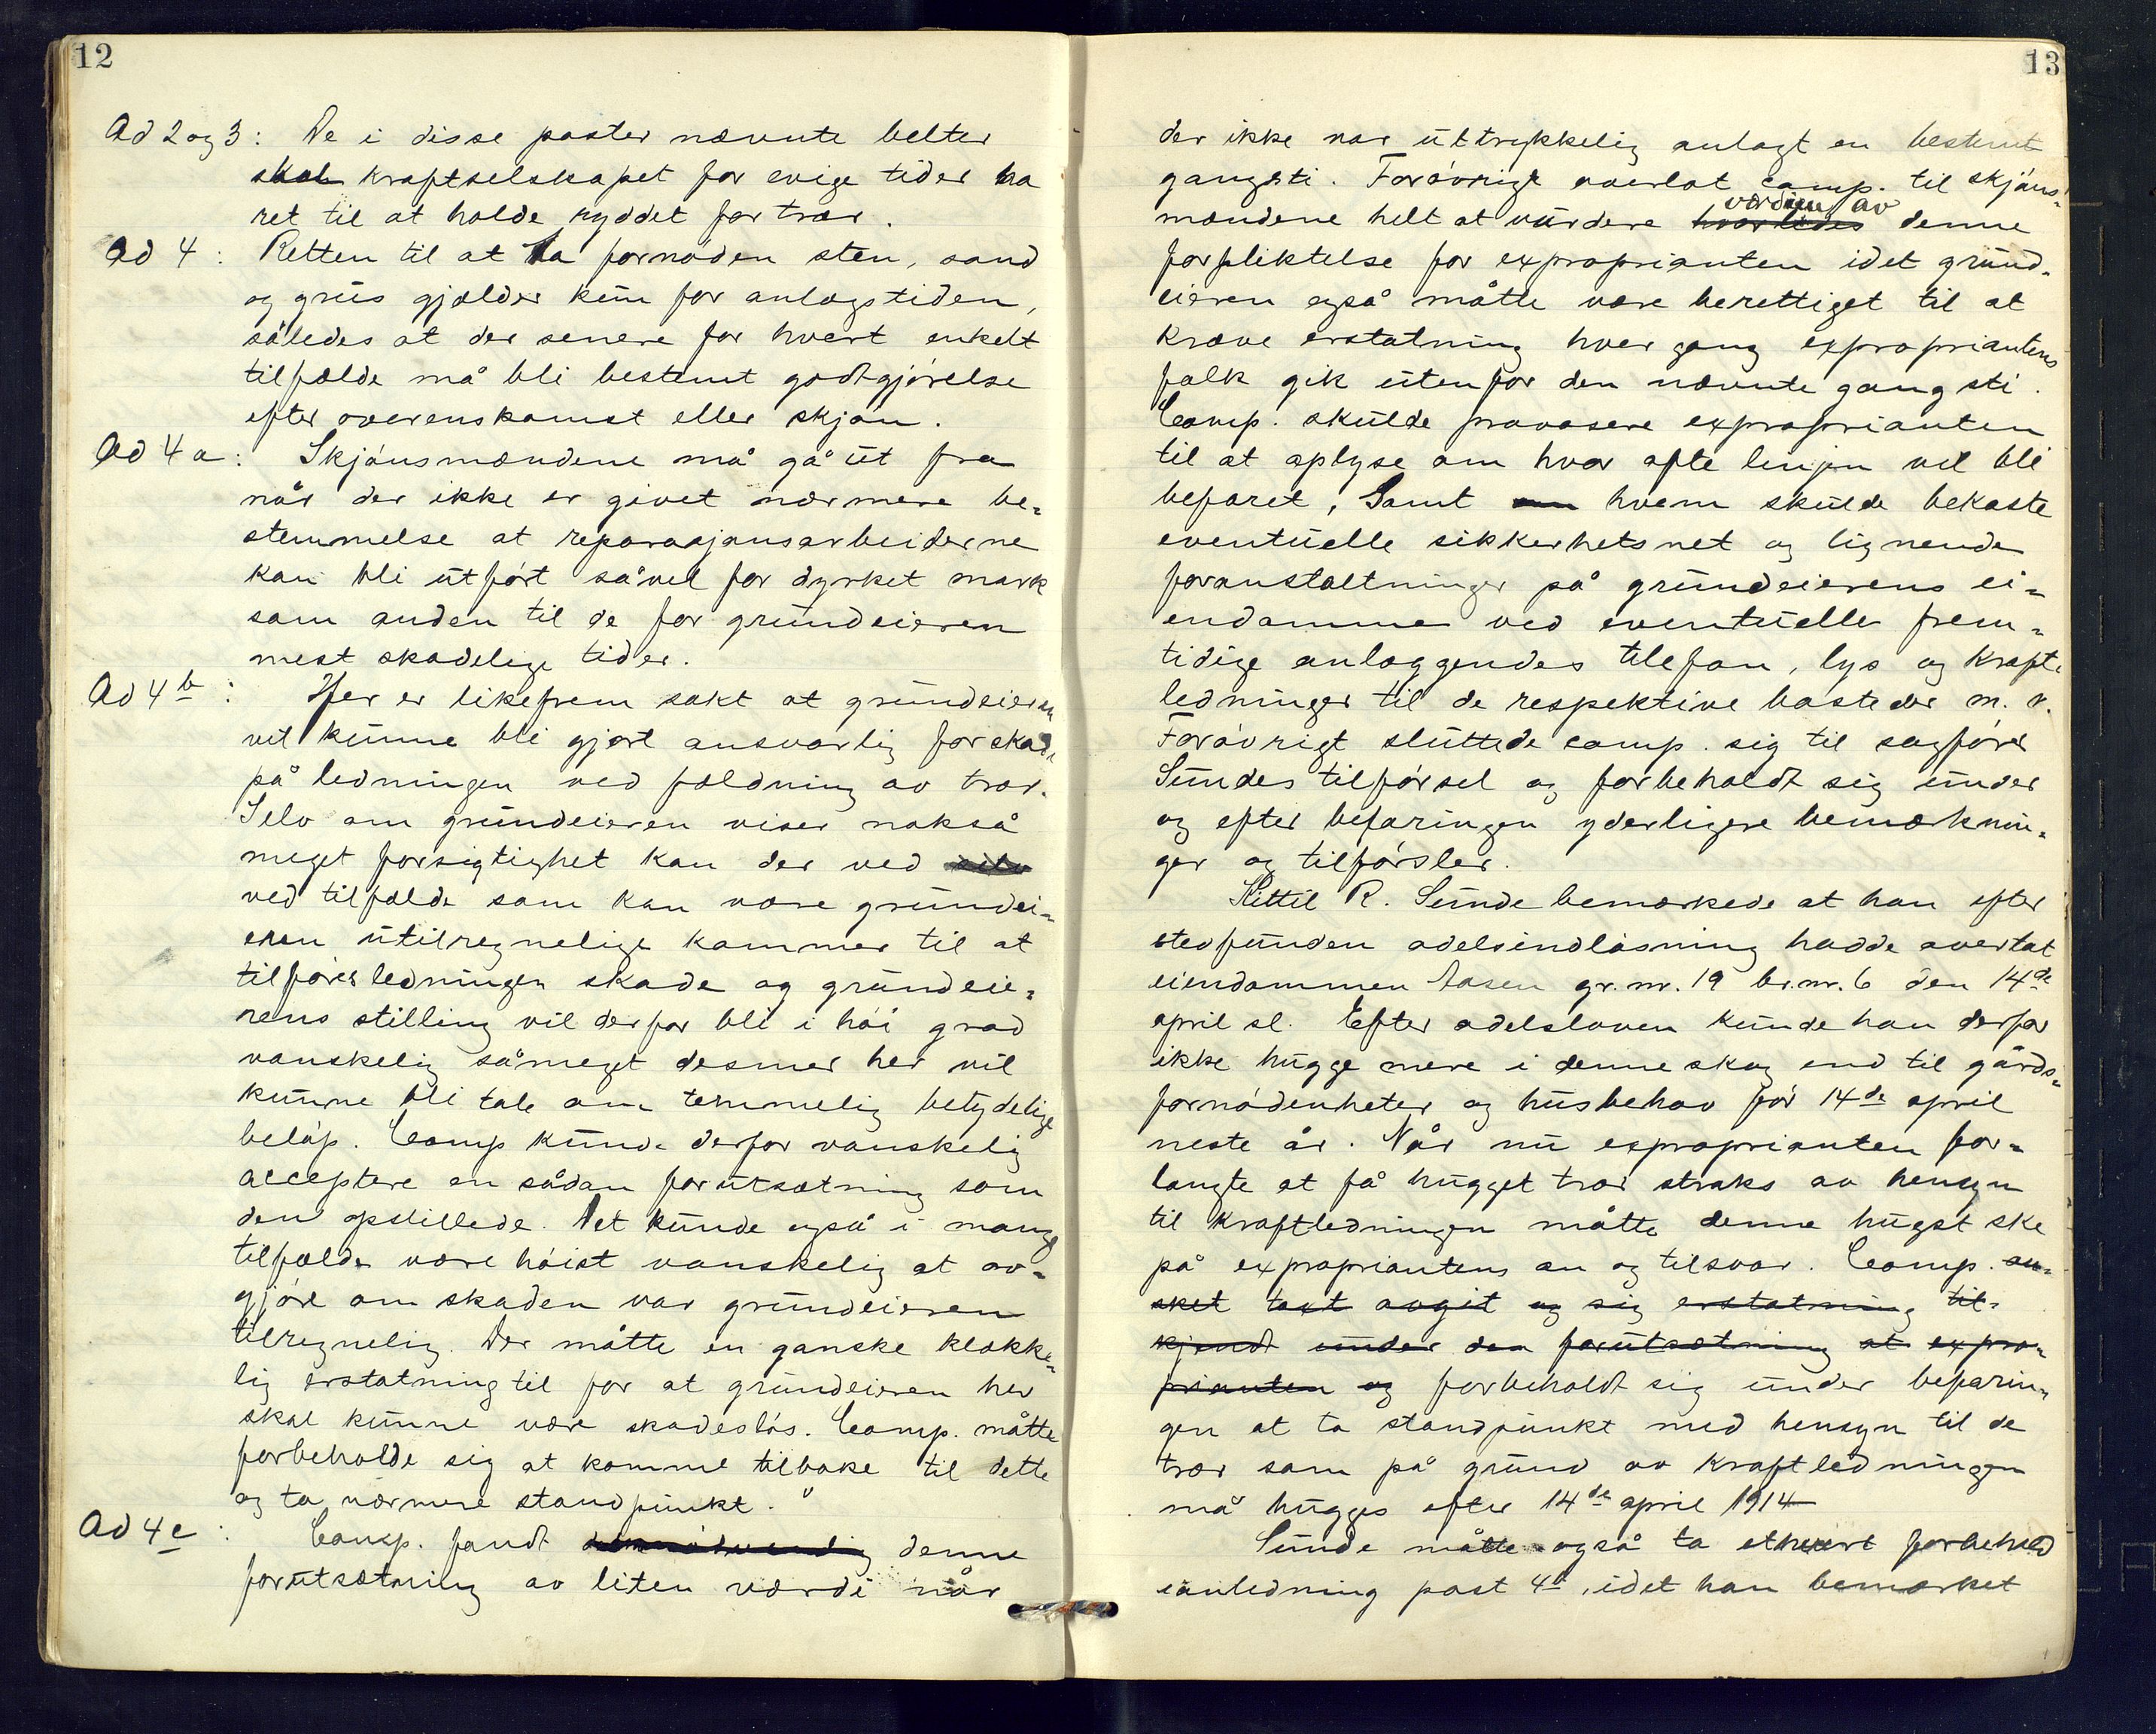 12
Ad 2 og 3: De i disse poster nævnte belter
skal kraftselskapet for evige tider ha
ret til at holde ryddet for trær.
Ad 4: Retten til at ta fornøden sten, sand
og grus gjælder kun for anlægstiden,
således at der senere for hvert enkelt
tilfælde må bli bestemt godtgjørelse
efter overenskomst eller skjøn.
Ad 4 a: Skjønsmændene må gå ut fra
når der ikke er givet nærmere be-
stemmelse at reparasjonsarbeiderne
kan bli utført såvel for dyrket mark
som anden til de for grundeieren
mest skadelige tider.
Ad 4 b: Her er likefrem sakt at grundeieren
vil kunne bli gjort ansvarlig for skade
på ledningen ved fældning av trær.
Selv om grundeieren viser nokså
meget forsigtighet kan der ved
ved tilfælde som kan være grundei-
eren utilregnelige kommer til at
tilføres ledningen skade og grundeie-
rens stilling vil derfor bli i høi grad
vanskelig såmeget desmer her vil
kunne bli tale om temmelig betydelige
beløp. Comp kunde derfor vanskelig
acceptere en sådan forutsætning som
den opstillede. Det kunde også i mange
tilfælde være høist vanskelig at av-
gjøre om skaden var grundeieren
tilregnelig. Der måtte en ganske klække-
lig erstatning til for at grundeieren her
skal kunne være skadesløs. Comp. måtte
forbeholde sig at komme tilbake til dette
og ta nærmere standpunkt."
Ad 4 c: Comp. fandt denne
forutsætning av liten værdi når
13
der ikke var uttrykkelig anlagt en bestemt
gangsti. Forøvrigt overlot comp. til skjøns-
værdien av
mændene helt at vurdere hvorledes denne
forpliktelse for exproprianten idet grund-
eieren også måtte være berettiget til at
kræve erstatning hver gang expropriantens
folk gik utenfor den nævnte gangsti.
Comp. skulde provosere exproprianten
til at oplyse om hvor ofte linjen vil bli
befaret, Samt om hvem skulde bekoste
eventuelle sikkerhetsnet og lignende
foranstaltninger på grundeierens ei-
endomme ved eventuelle frem-
tidige anlæggendes telefon, lys og kraft-
ledninger til de respektive bosteder m. v.
Forøvrigt sluttede comp. sig til sagfører
Sundes tilførsel og forbeholdt sig under
og efter befaringen yderligere bemærknin-
ger og tilførsler.
Kittil R. Sunde bemærkede at han efter
stedfunden odelsindløsning hadde overtat
eiendommen Aasen gr.nr. 19 br.nr. 6 den 14de
april sl. Efter odelsloven kunde han derfor
ikke hugge mere i denne skog end til gårds-
fornødenheter og husbehov før 14de april
neste år. Når nu exproprianten for-
langte at få hugget trær straks av hensyn
til kraftledningen måtte denne hugst ske
på expropriantens an og tilsvar. Comp. øn-
sket takst avgit og sig erstatning til-
kjendt under den forutsætning at expro-
prianten og forbeholdt sig under befarin-
gen at ta standpunkt med hensyn til de
trær som på grund av kraftledningen
må hugges efter 14de april 1914
Sunde måtte også ta ethvert forbehold
ianledning post 4b, idet han bemærket